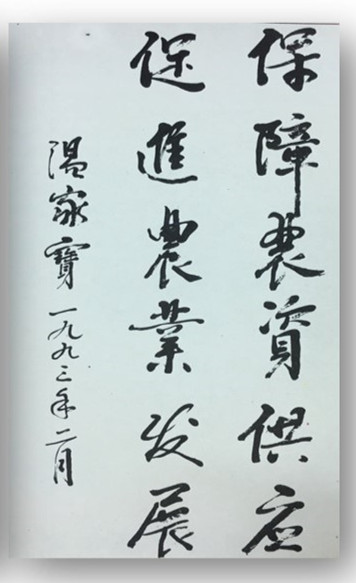 保障農資供应
促進農業发展
温家寶 一九九三年二月